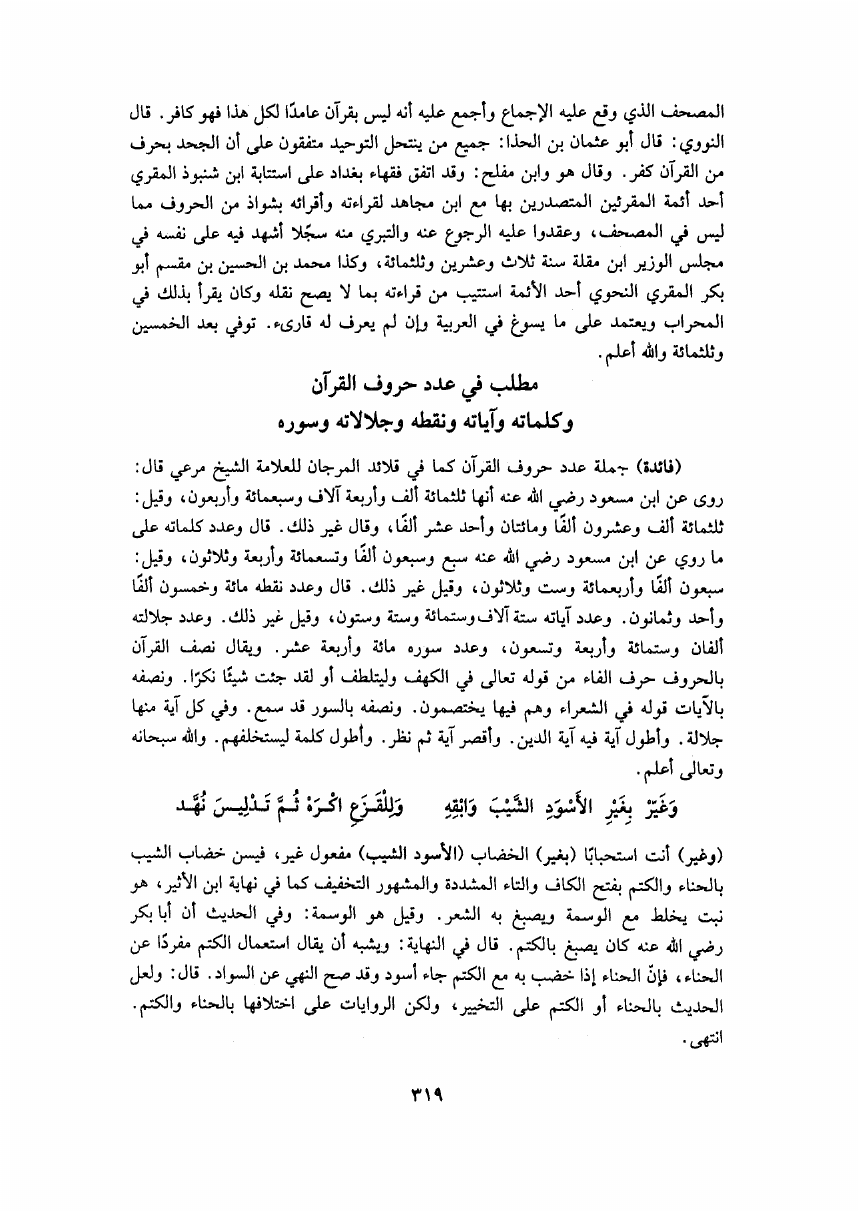 المصحف الذي وقع عليه الإجماع وأجمع عليه أنه ليس بقرآن عامدًا لكل هذا فهو كافر. قال
النووي: قال أبو عثمان بن الحذا: جميع من ينتحل التوحيد متفقون على أن الجحد بحرف
من القرآن كفر. وقال هو وابن مفلح: وقد اتفق فقهاء بغداد على استتابة ابن شنبوذ المقري
أحد أئمة المقرئين المتصدرين بها مع ابن مجاهد لقراءته وأقرائه بشواذ من الحروف مما
ليس في المصحف، وعقدوا عليه الرجوع عنه والتبري منه سجّلا أشهد فيه على نفسه في
مجلس الوزير ابن مقلة سنة ثلاث وعشرين وثلثمائة، وكذا محمد بن الحسين بن مقسم أبو
بكر المقري النحوي أحد الأئمة استتيب من قراءته بما لا يصح نقله وكان يقرأ بذلك في
المحراب ويعتمد على ما يسوغ في العربية وإن لم يعرف له قارىء. توفي بعد الخمسين
وثلثمائة والله أعلم.
مطلب في عدد حروف القرآن
وكلماته وآياته ونقطه وجلالاته وسوره
(فائدة) جملة عدد حروف القرآن كما في قلائد المرجان للعلامة الشيخ مرعي قال:
روى عن ابن مسعود رضي الله عنه أنها ثلثمائة ألف وأربعة آلاف وسبعمائة وأربعون، وقيل:
ثلثمائة ألف وعشرون ألفًا ومائتان وأحد عشر ألفًا، وقال غير ذلك. قال وعدد كلماته على
ما روي عن ابن مسعود رضي الله عنه سبع وسبعون ألفًا وتسعمائة وأربعة وثلاثون، وقيل:
سبعون ألفًا وأربعمائة وست وثلاثون، وقيل غير ذلك. قال وعدد نقطه مائة وخمسون ألفًا
وأحد وثمانون. وعدد آياته ستة آلاف وستمائة وستة وستون، وقيل غير ذلك. وعدد جلالته
ألفان وستمائة وأربعة وتسعون، وعدد سوره مائة وأربعة عشر. ويقال نصف القرآن
بالحروف حرف الفاء من قوله تعالى في الكهف وليتلطف أو لقد جئت شيئًا نكرًا. ونصفه
بالآيات قوله في الشعراء وهم فيها يختصمون. ونصفه بالسور قد سمع. وفي كل آية منها
جلالة. وأطول آية فيه آية الدين. وأقصر آية ثم نظر. وأطول كلمة ليستخلفهم. والله سبحانه
وتعالى أعلم.
وَغَيّرْ بِغَيْرِ الأَسْوَدِ الشَّيْبَ وَابْقِهِ وَلِلْقَزَعِ اكْرَهْ ثُمَّ تَدْلِيسَ نُهَّد
(وغير) أنت استحبابًا (بغير) الخضاب (الأسود الشيب) مفعول غير، فيسن خضاب الشيب
بالحناء والكتم بفتح الكاف والتاء المشددة والمشهور التخفيف كما في نهاية ابن الأثير، هو
نبت يخلط مع الوسمة ويصبغ به الشعر. وقيل هو الوسمة: وفي الحديث أن أبا بكر
رضي الله عنه كان يصبغ بالكتم. قال في النهاية: ويشبه أن يقال استعمال الكتم مفردًا عن
الحناء، فإنّ الحناء إذا خضب به مع الكتم جاء أسود وقد صح النهي عن السواد. قال: ولعل
الحديث بالحناء أو الكتم على التخيير، ولكن الروايات على اختلافها بالحناء والكتم.
انتهى.
٣١٩